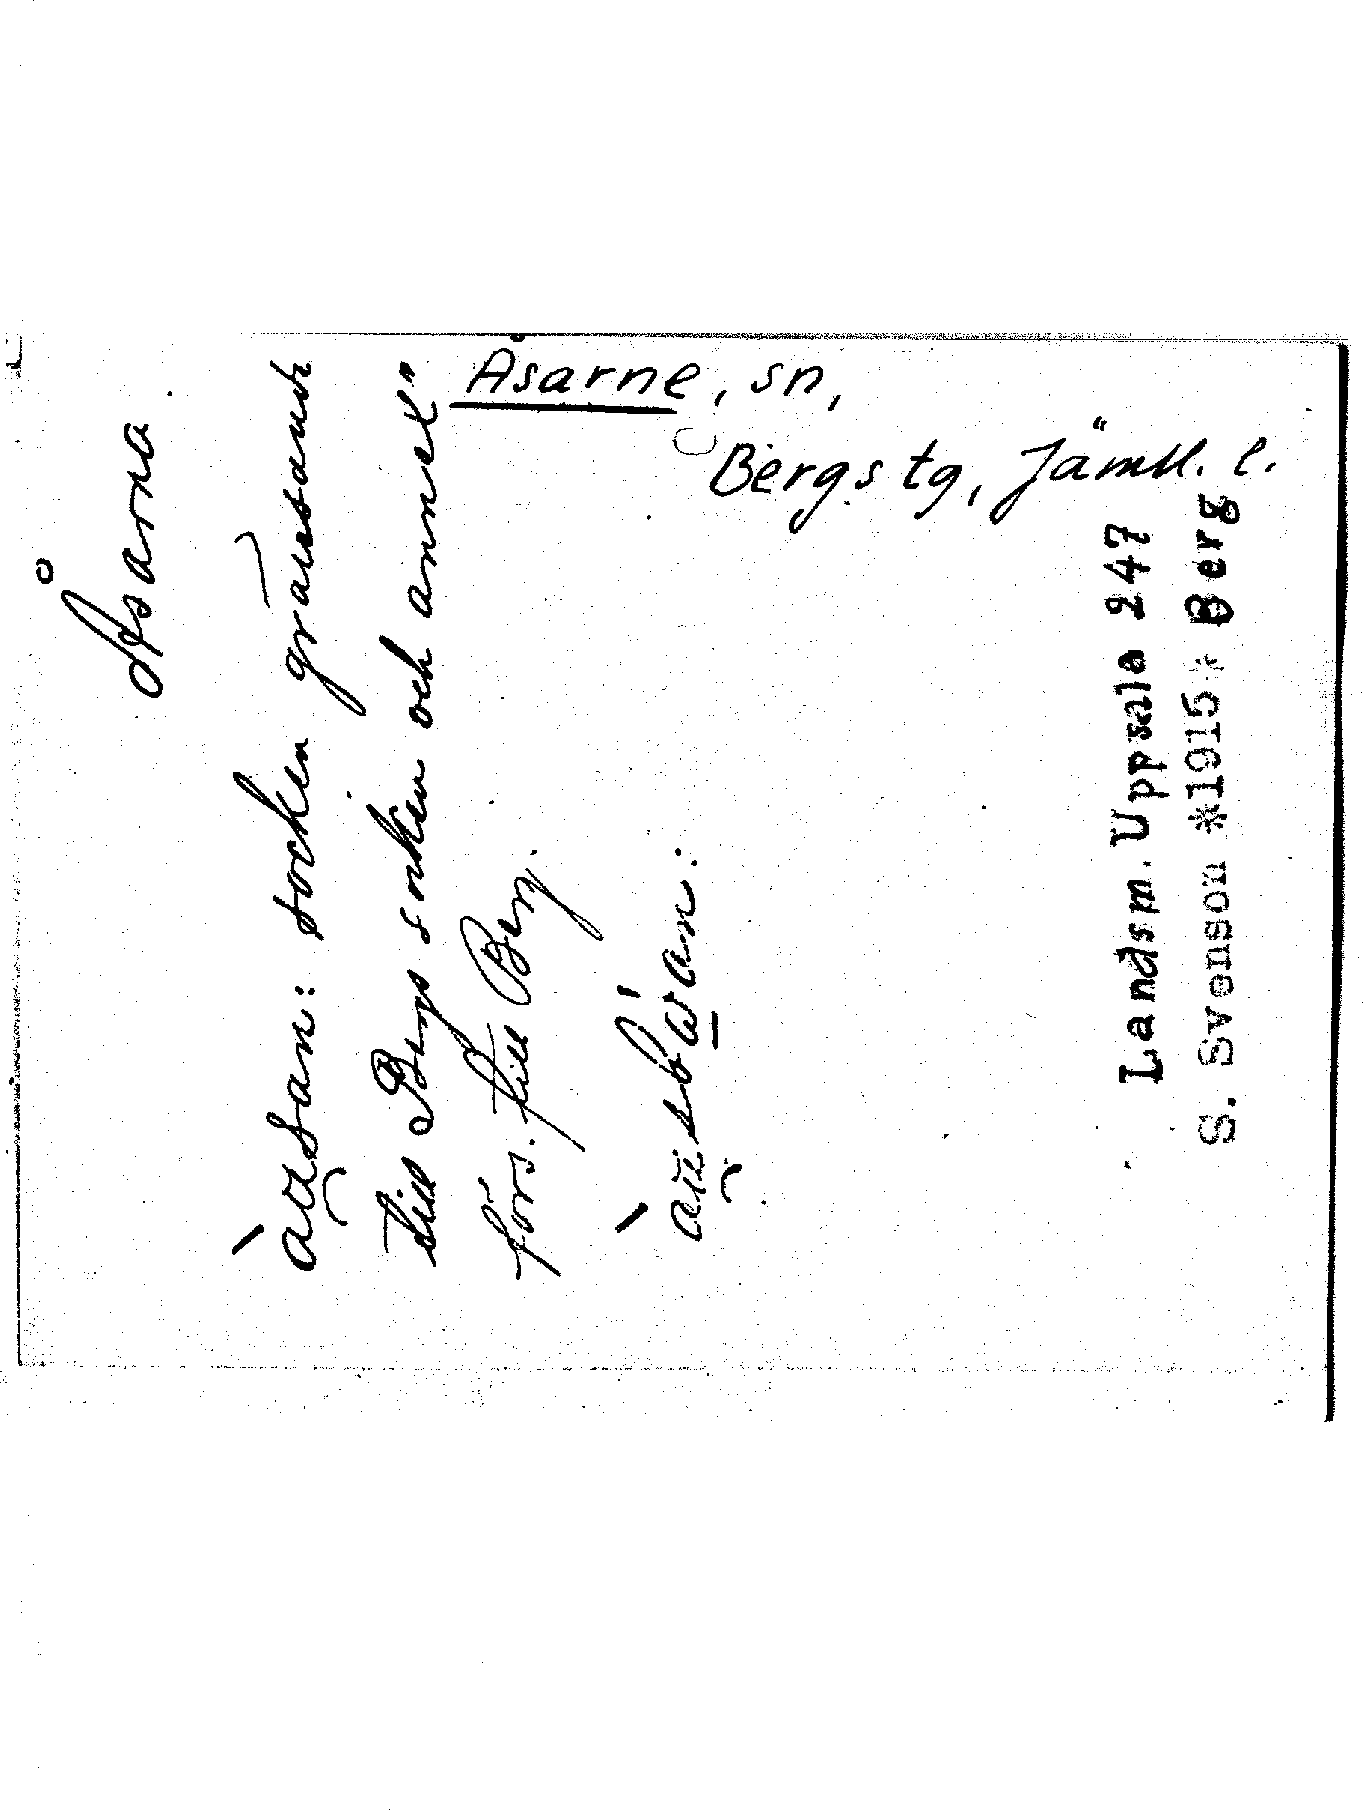 Åsarne, sn,
Bergs tg, Jämtl. l.
Åsarna
àu̯san: socken gränsande
till Bergs socken och annex
förs. till Berg.
Landsm. Uppsala 247
S. Svenson *1915* Berg